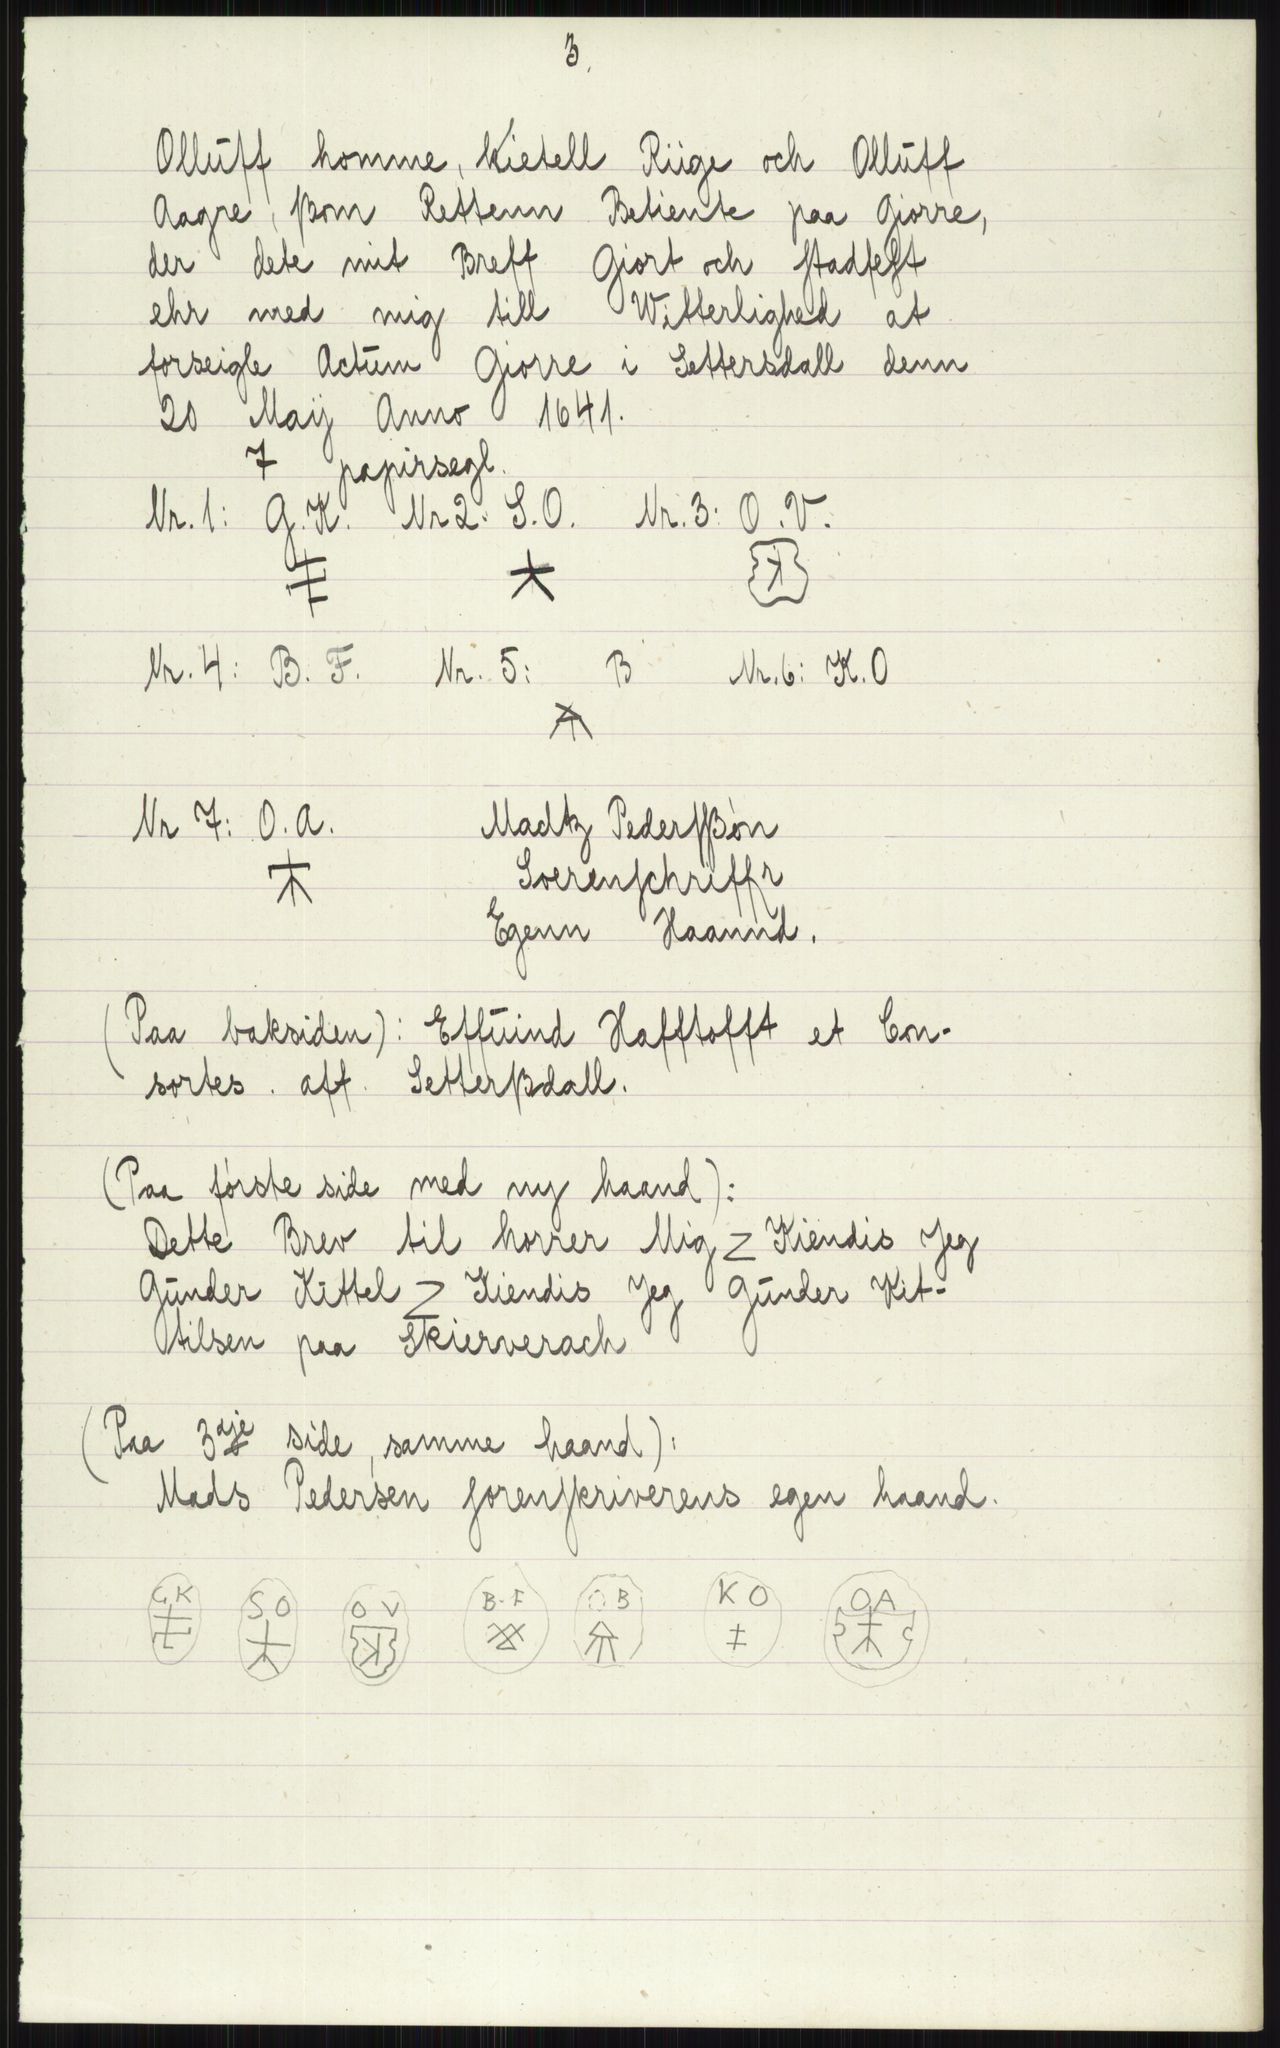 3.
Ollŭff homme, Kietell Riige och Ollŭff
Aagre, ßom Rettenn Betiente paa Giorre,
der dete mit Breff Giort och stadfest
ehr med mig till Witterlighed at
forseigle Actŭm Giorre i Settersdall denn
20 Maij Anno 1641.
7 papirsegl.
Nr. 1: G.K. Nr 2: S.O. Nr. 3: O.V.
Nr. 4: B. F. Nr. 5: B Nr. 6: K.O
Nr 7: O.A. Madtz Pedersßøn
Soerenschriffr
Egenn Haannd.
(Paa baksiden): Effŭind Hafftofft et Con-
sortes. aff. Setterßdall.
(Paa første side med ny haand):
Dette Brev til horrer Mig Z Kiendis Jeg
Gŭnder Kittel Z Kiendis Jeg Gŭnder Kit-
tilsen paa Skierverach
(Paa 3dje side, samme haand):
Mads Pedersen sorenskriverens egen haand.
G K S O O V B. F O B K O O A